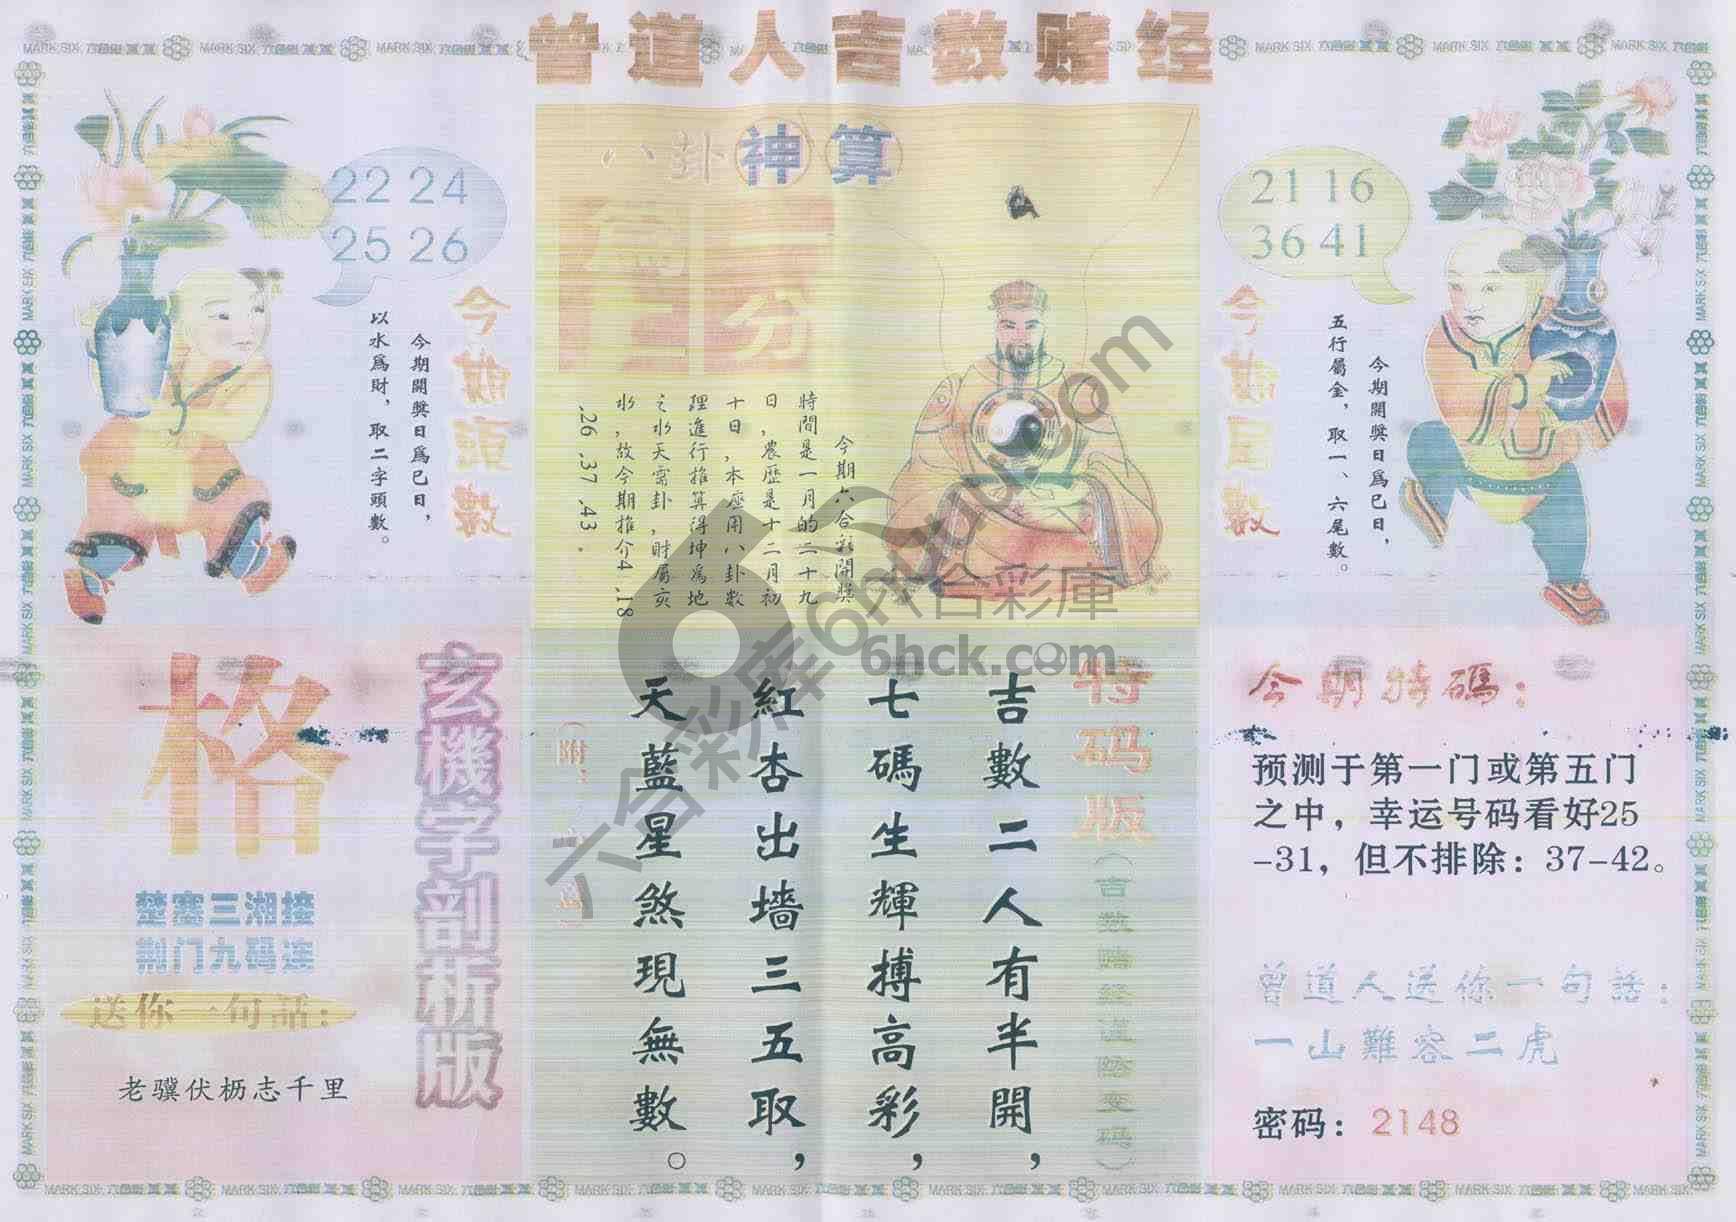 曾道人吉数赌经
MARK SIX 六合彩
八卦神算
22 24
25 26
今期頭數
今期開獎日爲巳日，
以水爲財，取二字頭數。
今期六合彩開獎
時間是一月的二十九
日,農歷是十二月初
十日,本座用八卦數
理進行推算得坤爲地
之水天需卦,財屬亥
水,故今期推介4.18
.26.37.43.
21 16
36 41
今期尾數
今期開獎日爲巳日，
五行屬金，取一、六尾數。
玄機字剖析版
格
楚塞三湘接
荆门九码连
送你一句話：
老骥伏枥志千里
特码版
(吉数赌经谨防变码)
吉數二人有半開，
七碼生輝搏高彩，
紅杏出墻三五取，
天藍星煞現無數。
今期特碼：
预测于第一门或第五门
之中，幸运号码看好25
-31，但不排除：37-42。
曾道人送你一句話：
一山難容二虎
密码：2148
六合彩库6hctup.com
六合彩庫
6hck.com